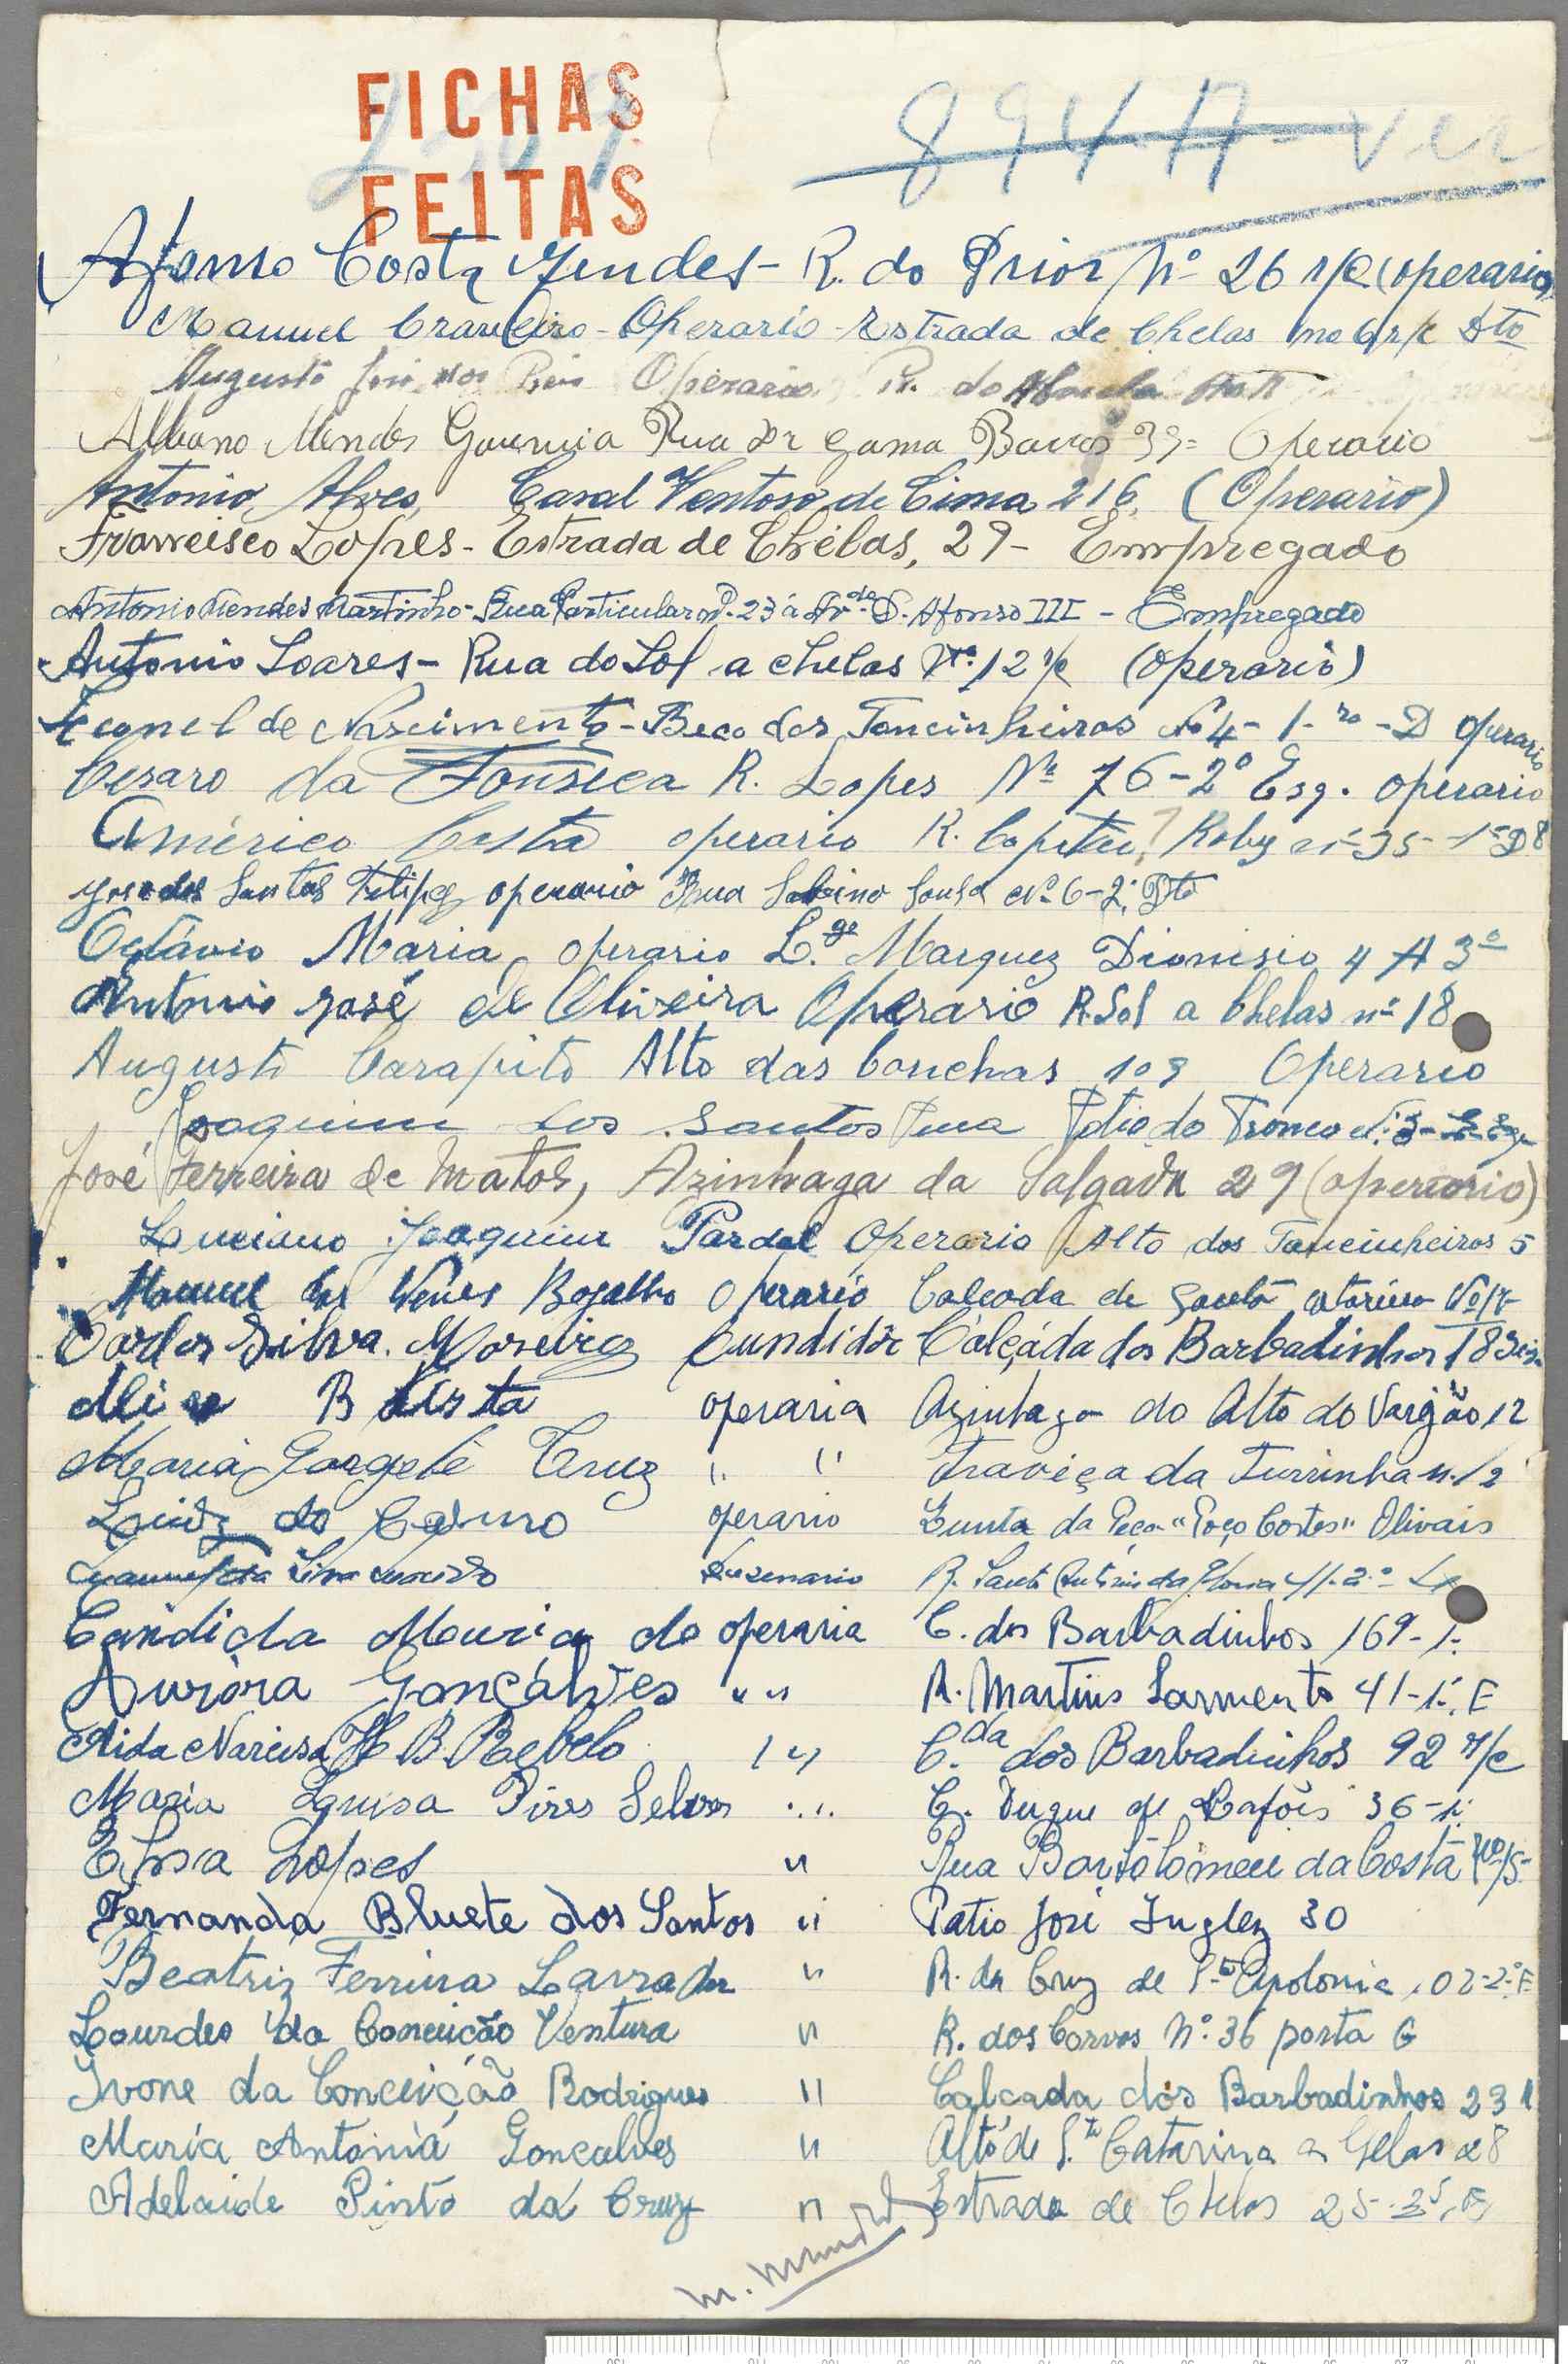 FICHAS
FEITAS
894 A - ver
Afonso Costa Mendes - R. do Prior Nº 26 r/c (operario)
Manuel Craveiro - Operario - Estrada de Chelas no 6 r/c Dto
Augusto José dos Reis Operario R. do
Albano Mendes Gouveia Rua Dr Gama Barros 39 = Operario
Antonio Alves, Casal Ventoso de Cima 216, (Operario)
Francisco Lopes - Estrada de Chelas, 29 - Empregado
Antonio Mendes Martinho - Rua Particular nº 23 á Avda D. Afonso III - Empregado
Antonio Soares - Rua do Sol a chelas Nº 12 r/c (operario)
Leonel de Nascimento - Beco dos Toucinheiros Nº 4 - 1-ro - D operario
Cesaro da Fonseca R. Lopes Nº 76 - 2º Esq. operario
Américo Costa operario R. Capitão Roby nº 35 - 1º D
José dos Santos Felipe operario Rua Sabino Sousa Nº 6 - 2º Dto
Octávio Maria operario L.go Marquez Dionisio 4 A 3º
Antonio José de Oliveira Operario R. Sol a Chelas nº 18
Augusto Carapito Alto das Conchas 109 Operario
Joaquim dos Santos Patio do Tronco
José Ferreira de Matos, Azinhaga da Salgada 29 (operario)
Luciano Joaquim Pardal Operario Alto dos Toucinheiros 5
Manuel Bogalho Operario Calcada de Santa
Carlos Silva Moreira fundidor Calçáda dos Barbadinhos 18
operaria Azinhaga do Alto do Vargão 12
Maria Cruz " " Traveça da Turrinha n. 12
Luiz do Carmo operario Quinta da "Poço Cortes" Olivais
R. Santo António da Gloria 41-2.º
Candida Maria do operaria C. dos Barbadinhos 169-1.
Aurora Gonçálves " " R. Martins Sarmento 41-1.º E
Aida Narcisa H B. Rebelo " " C.da dos Barbadinhos 92 r/c
Maria Luisa Pires " " C. Duque de Lafões 36-1.º
Elsa Lopes " Rua Bartolomeu da Costa Nº 15
Fernanda Bluete dos Santos " Patio José Inglez 30
Beatriz Ferreira Lavrador " R. da Cruz de S.ta Apolonia 102-2.º E
Lourdes da Conceição Ventura " R. dos Corvos Nº. 36 porta G
Ivone da Conceição Rodrigues " Calcada dos Barbadinhos 231
Maria Antónia Goncalves " Alto de S.ta Catarina a Gelas 28
Adelaide Pinto da Cruz " Estrada de Chelas 25